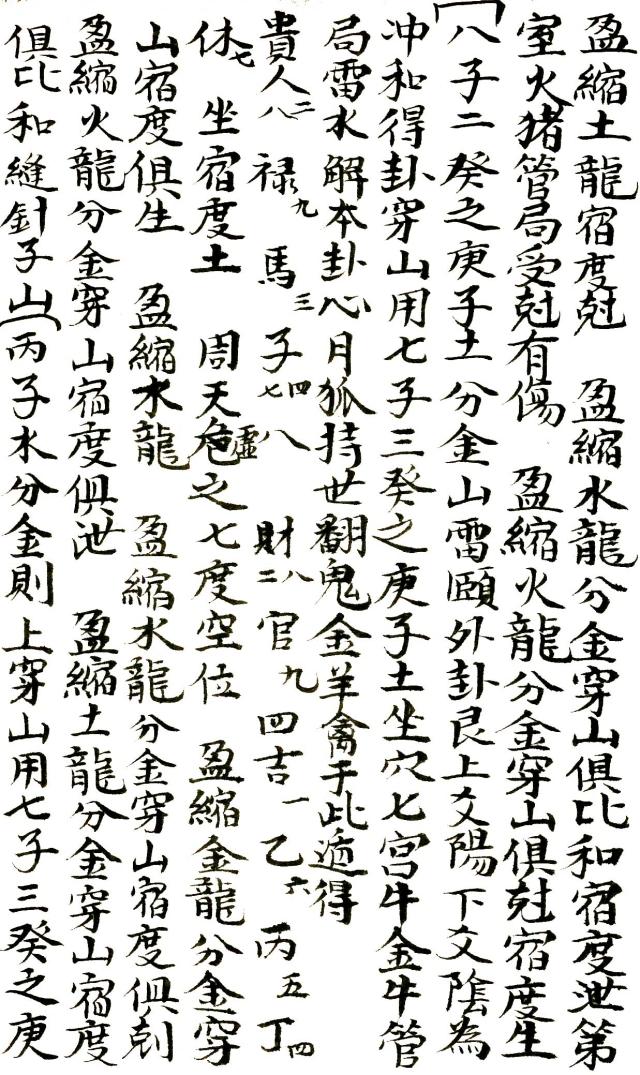 盈縮土龍宿度尅　盈縮水龍分金穿山俱比和宿度泄第
室火猪管局受尅有傷　盈縮火龍分金穿山俱尅宿度生
八子二癸之庚子土分金山雷頤外卦艮上爻陽下爻陰為
冲和得卦穿山用七子三癸之庚子土坐穴七宮牛金牛管
局雷水解本卦心月狐持世翻鬼金羊禽于此遁得
貴人二八　祿九　馬三　子四七八　財八二　官九　四吉一　乙六　丙五　丁四
休七　坐宿度土　周天危虛之七度空位　盈縮金龍分金穿
山宿度俱生　盈縮水龍　盈縮水龍分金穿山宿度俱剋
盈縮火龍分金穿山宿度俱泄　盈縮土龍分金穿山宿度
俱比和縫針子山丙子水分金則上穿山用七子三癸之庚